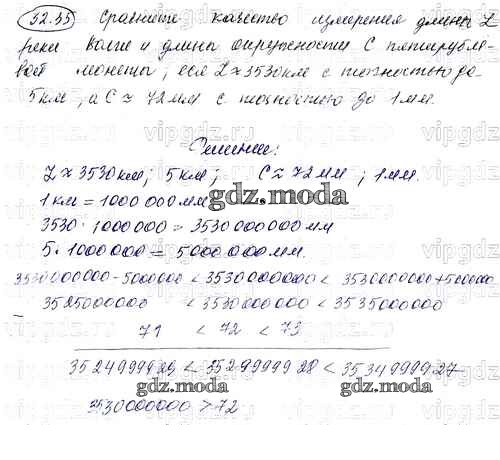 32.35 Сравните качество измерения длины L
реки Волги и длины окружности C пятирубле-
вой монеты, если L ≈ 3530 км с точностью до
5 км, а C ≈ 72 мм с точностью до 1 мм.
Решение:
L ≈ 3530 км; 5 км; C ≈ 72 мм; 1 мм.
1 км = 1000 000 мм
gdz.moda
3530 · 1000000 = 3530000000 мм
5 · 1000000 = 5000000 мм.
3530000000 - 5000000 < 3530000000 < 3530000000 + 5000000
3525000000 < 3530000000 < 3535000000
71 < 72 < 73
3524999929 < 3529999928 < 3534999927
gdz.moda gdz.moda
3530000000 > 72